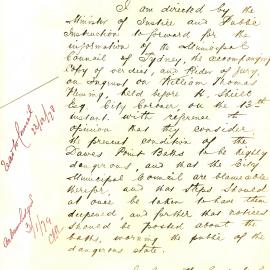 I am directed by the
Minister of Justice and Public
Instruction to forward for the
information of the Municipal
Council of Sydney, the accompanying
Copy of verdict, and Rider of Jury,
on Inquest on William Thomas
held before H. Shiell
Esq. City Coroner, on the 13th
instant with reference to
opinion that they consider
the present condition of the
Dawes Point Baths to be highly
dangerous, and that the City
Municipal Council are blameable
therefor, and that steps should
at once be taken to have them
deepened, and further that notices
should be posted about the
baths, warning the public of the
dangerous state.